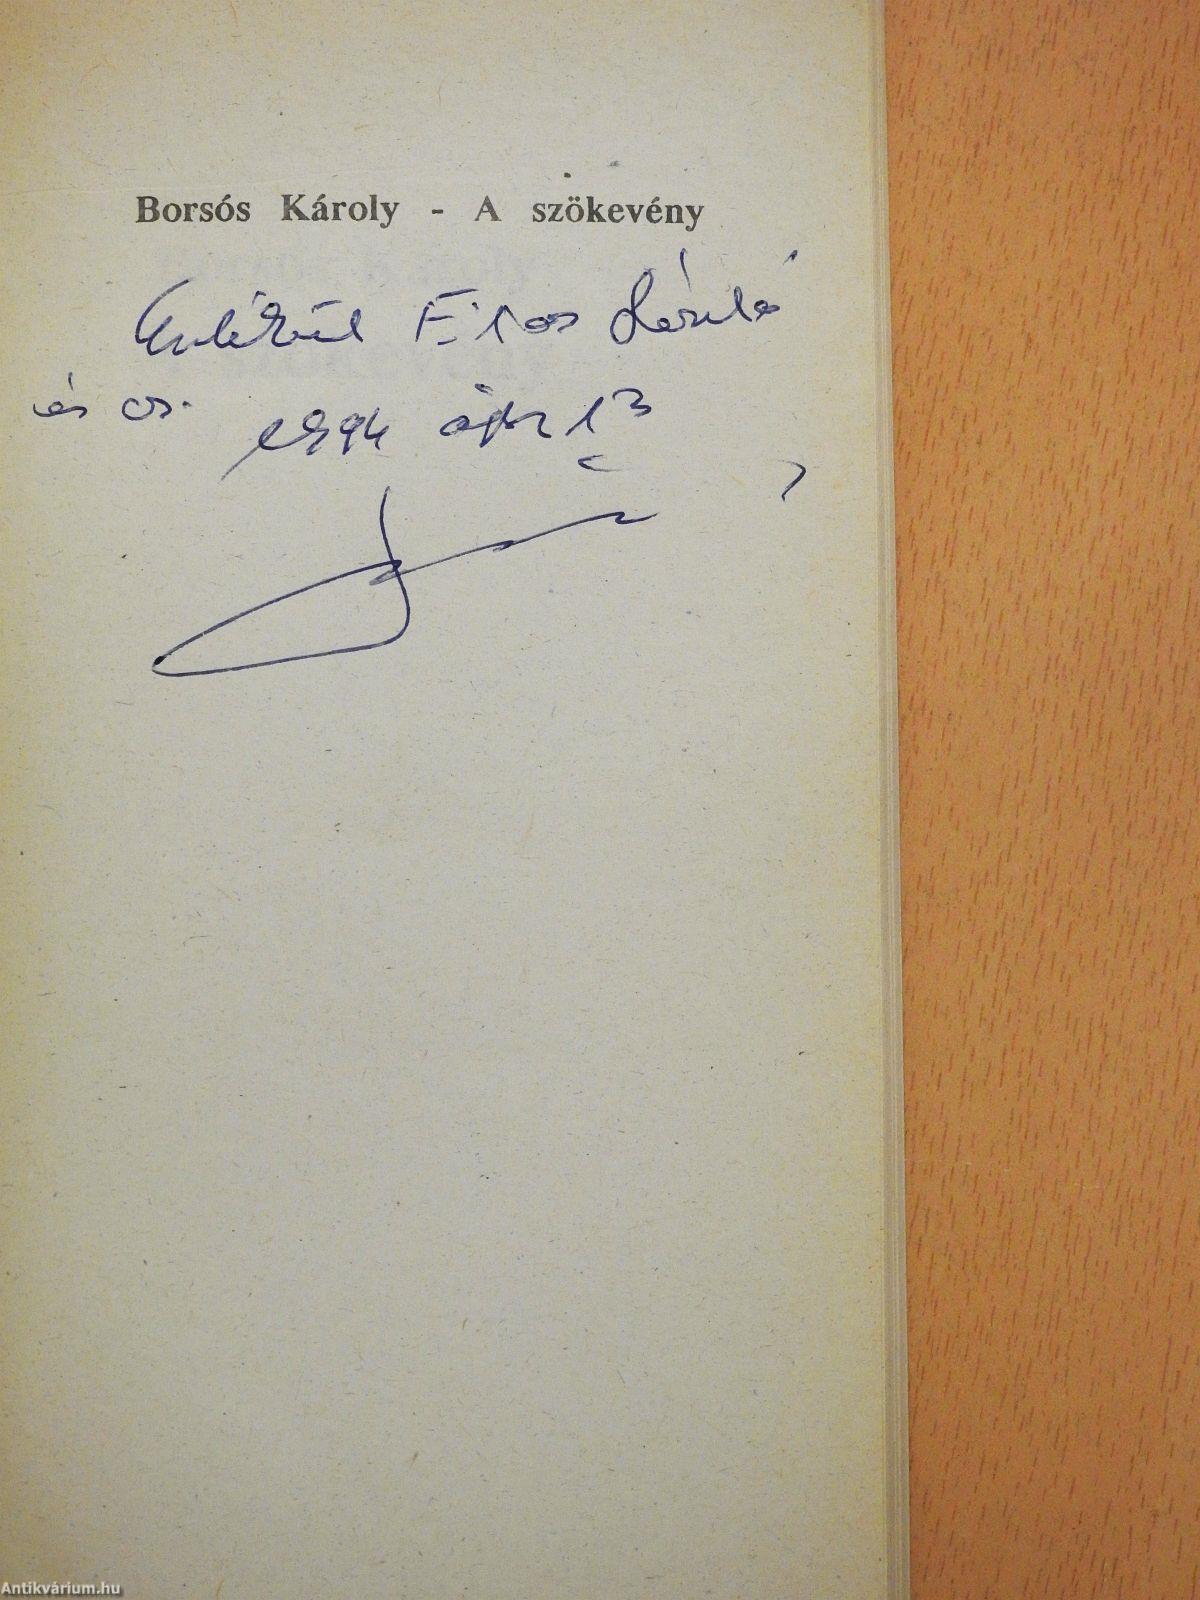 Borsós Károly - A szökevény
Emlékül László
és cs.
1994 ápr 13
Antikvárium.hu